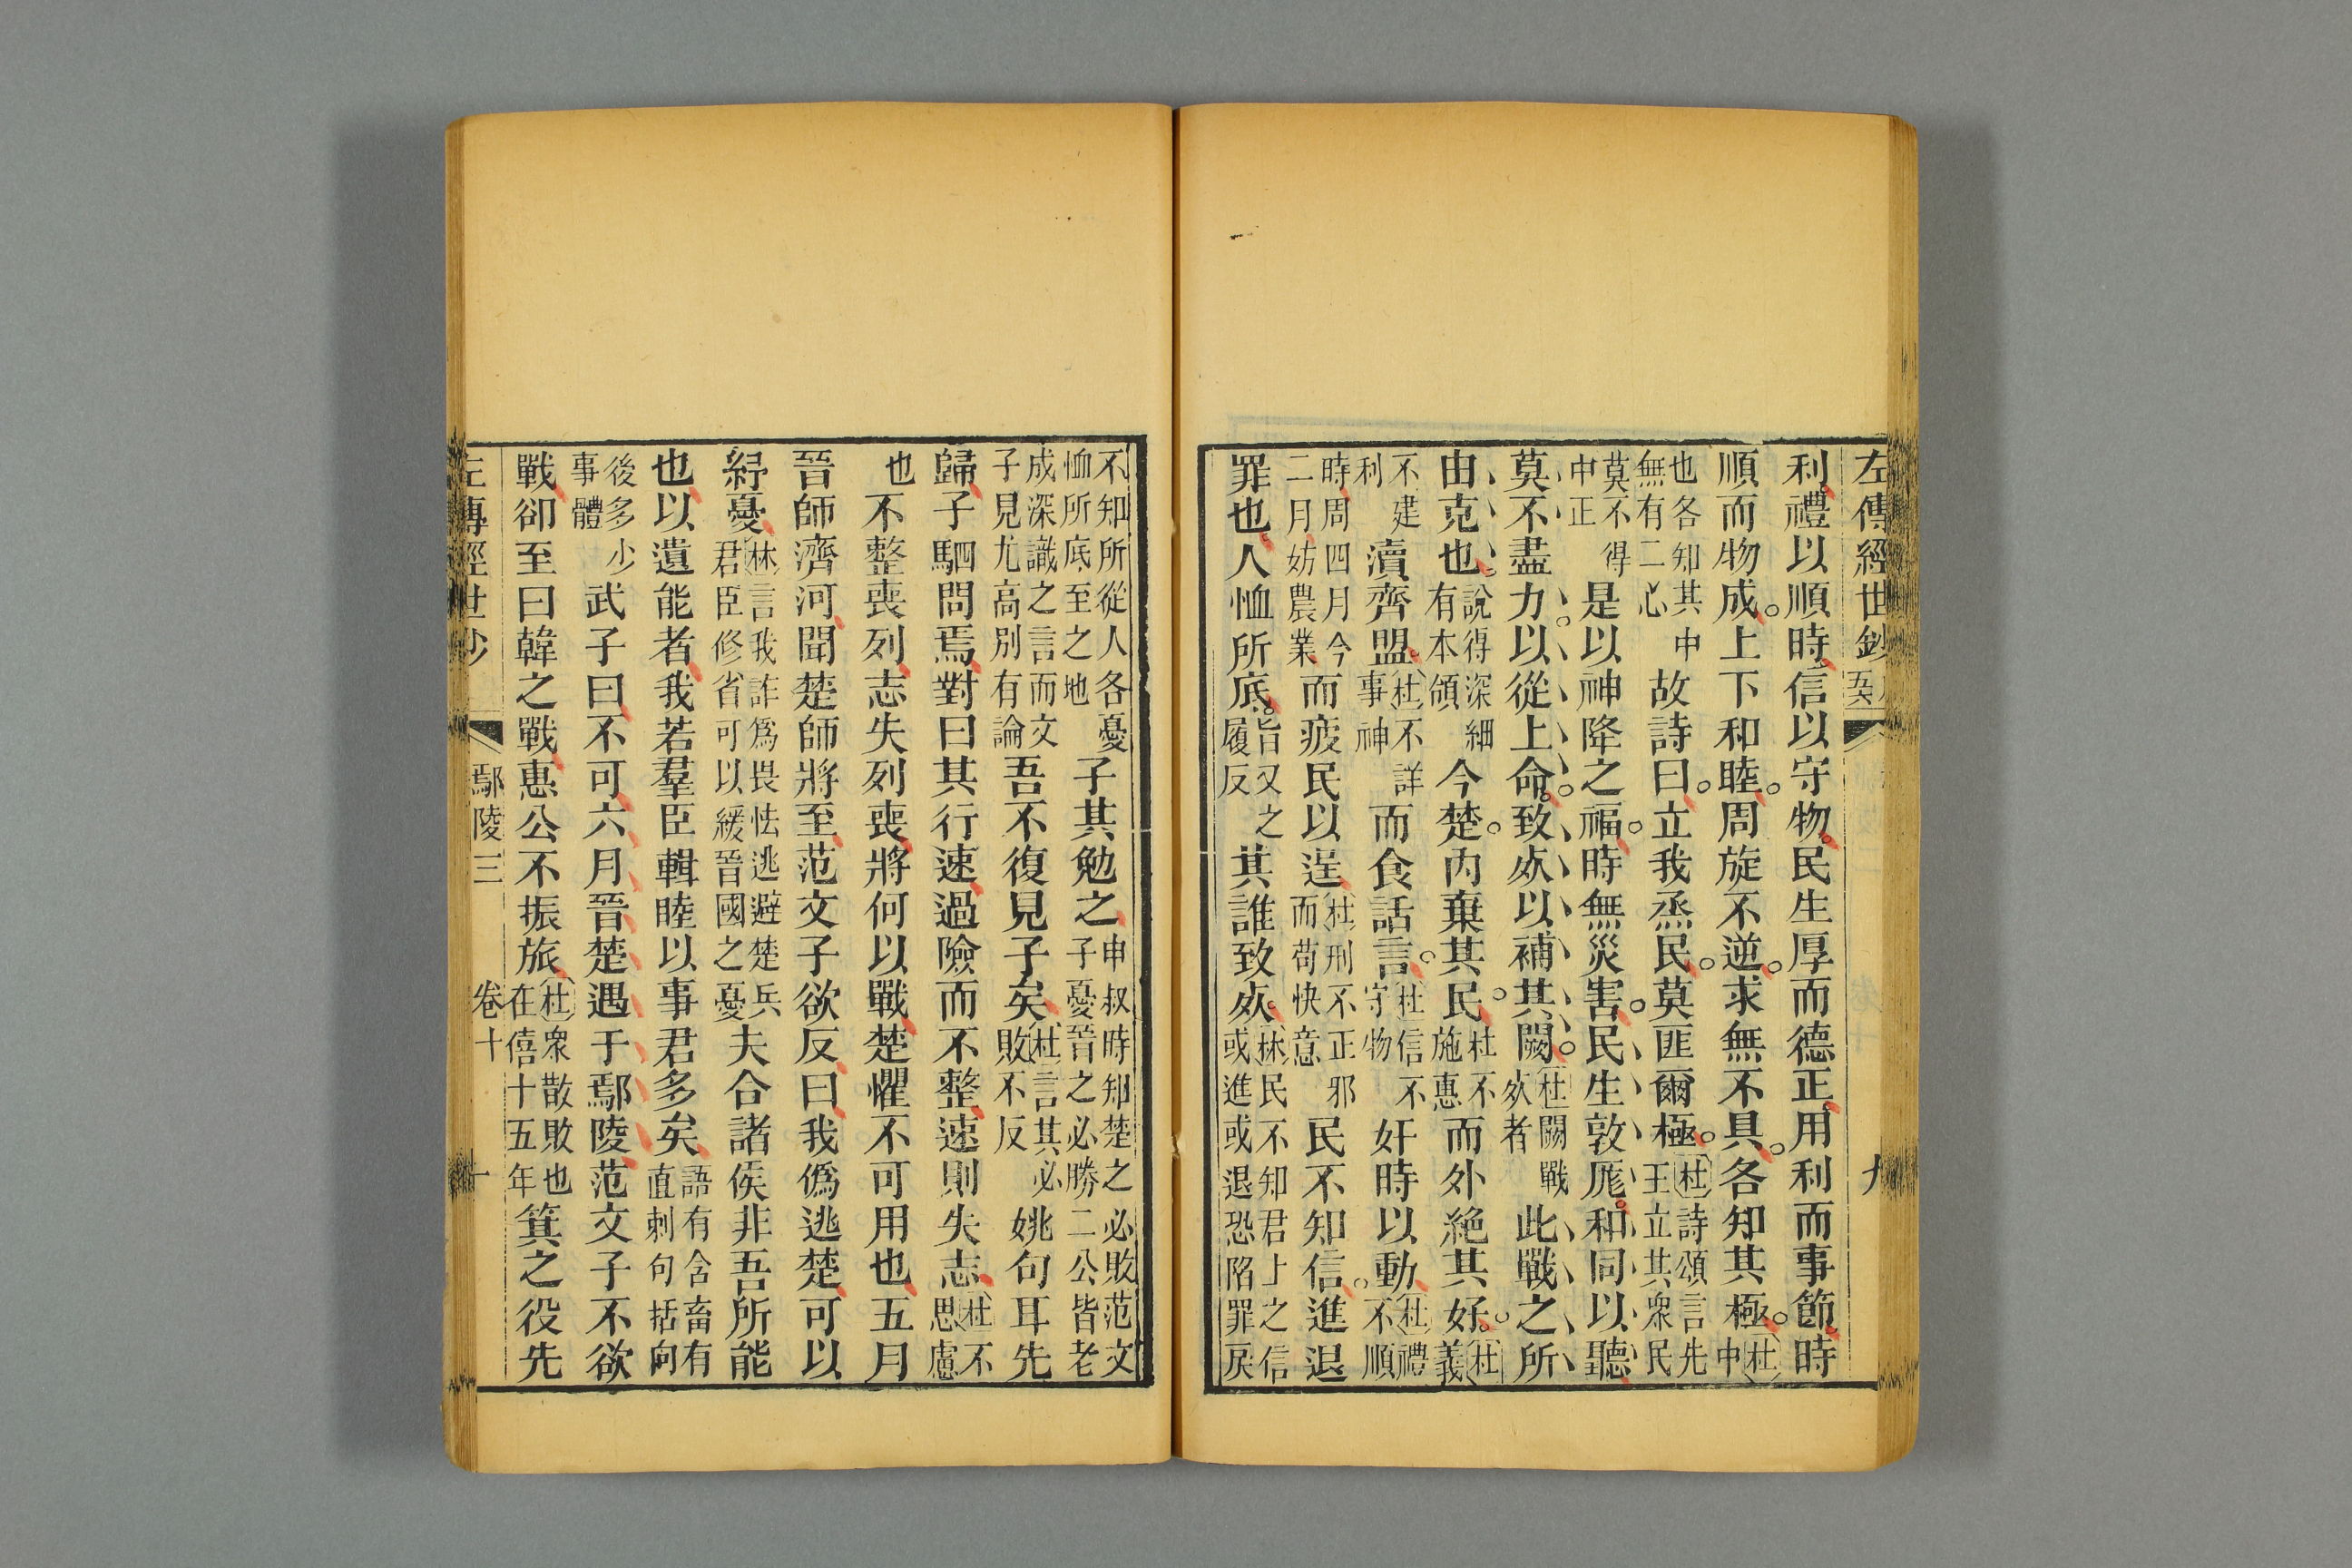 左傳經世鈔
九
利禮以順時信以守物民生厚而德正用利而事節時
順而物成上下和睦周旋不逆求無不具各知其極杜中
也各知其中
無有二心
故詩曰立我烝民莫匪爾極杜詩頌言先
王立其衆民
莫不得
中正
是以神降之福時無災害民生敦厖和同以聽
莫不盡力以從上命致死以補其闕杜闕戰
死者
此戰之所
由克也說得深細
有本領
今楚內棄其民杜不
施惠
而外絶其好杜
義
不建
利
瀆齊盟杜不詳
事神
而食話言杜信不
守物
奸時以動杜禮
不順
時周四月今
二月妨農業
而疲民以逞杜刑不正邪
而苟快意
民不知信進退
罪也人恤所底旨又之
履反
其誰致死林民不知君上之信
或進或退恐陷罪戾
不知所從人各憂
恤所底至之地
子其勉之申叔時知楚之必敗范文
子憂晉之必勝二公皆老
成深識之言而文
子見尤高別有論
吾不復見子矣杜言其必
敗不反
姚句耳先
歸子駟問焉對曰其行速過險而不整速則失志杜不
思慮
也不整喪列志失列喪將何以戰楚懼不可用也五月
晉師濟河聞楚師將至范文子欲反曰我僞逃楚可以
紓憂林言我詐爲畏怯逃避楚兵
君臣修省可以緩晉國之憂
夫合諸侯非吾所能
也以遺能者我若羣臣輯睦以事君多矣語有含畜有
直刺句括向
後多少
事體
武子曰不可六月晉楚遇于鄢陵范文子不欲
戰卻至曰韓之戰惠公不振旅杜衆散敗也
在僖十五年
箕之役先
左傳經世鈔
鄢陵三
卷十